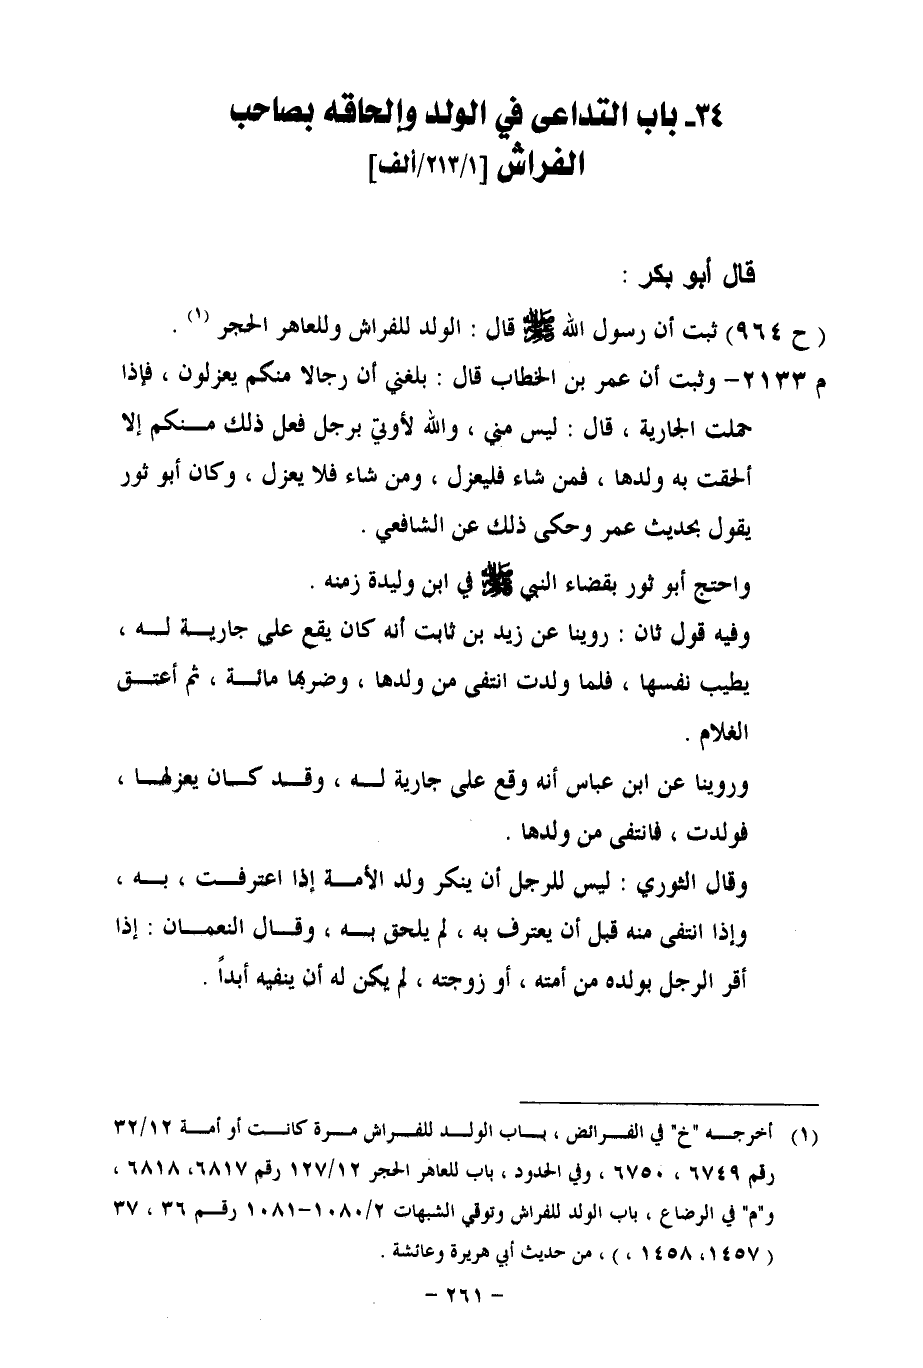 ٣٤ـ باب التداعى في الولد وإلحاقه بصاحب
الفراش [٢١٣/١/ألف]
قال أبو بكر :
( ح ٩٦٤) ثبت أن رسول الله ﷺ قال : الولد للفراش وللعاهر الحجر (١) .
م ٢١٣٣– وثبت أن عمر بن الخطاب قال : بلغني أن رجالا منكم يعزلون ، فإذا
حملت الجارية ، قال : ليس مني ، والله لأوتيَ برجل فعل ذلك منكم إلا
ألحقت به ولدها ، فمن شاء فليعزل ، ومن شاء فلا يعزل ، وكان أبو ثور
يقول بحديث عمر وحكى ذلك عن الشافعي .
واحتج أبو ثور بقضاء النبي ﷺ في ابن وليدة زمنه .
وفيه قول ثان : روينا عن زيد بن ثابت أنه كان يقع على جارية له ،
يطيب نفسها ، فلما ولدت انتفى من ولدها ، وضربها مائة ، ثم أعتق
الغلام .
وروينا عن ابن عباس أنه وقع على جارية له ، وقد كان يعزلها ،
فولدت ، فانتفى من ولدها .
وقال الثوري : ليس للرجل أن ينكر ولد الأمة إذا اعترفت ، به ،
وإذا انتفى منه قبل أن يعترف به ، لم يلحق به ، وقال النعمان : إذا
أقر الرجل بولده من أمته ، أو زوجته ، لم يكن له أن ينفيه أبداً .
(١) أخرجه "خ" في الفرائض ، باب الولد للفراش مرة كانت أو أمة ٣٢/١٢
رقم ٦٧٤٩ ، ٦٧٥٠ ، وفي الحدود ، باب للعاهر الحجر ١٢٧/١٢ رقم ٦٨١٧، ٦٨١٨ ،
و"م" في الرضاع ، باب الولد للفراش وتوقي الشبهات ١٠٨٠/٢–١٠٨١ رقم ٣٦ ، ٣٧
( ١٤٥٧، ١٤٥٨ ،) ، من حديث أبي هريرة وعائشة .
– ٢٦١ –